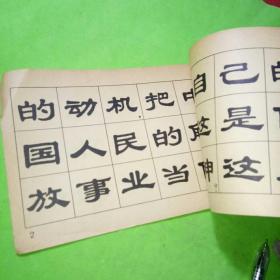 的动机把中
国人民的这
放事业当
2
自己的
是
伸这